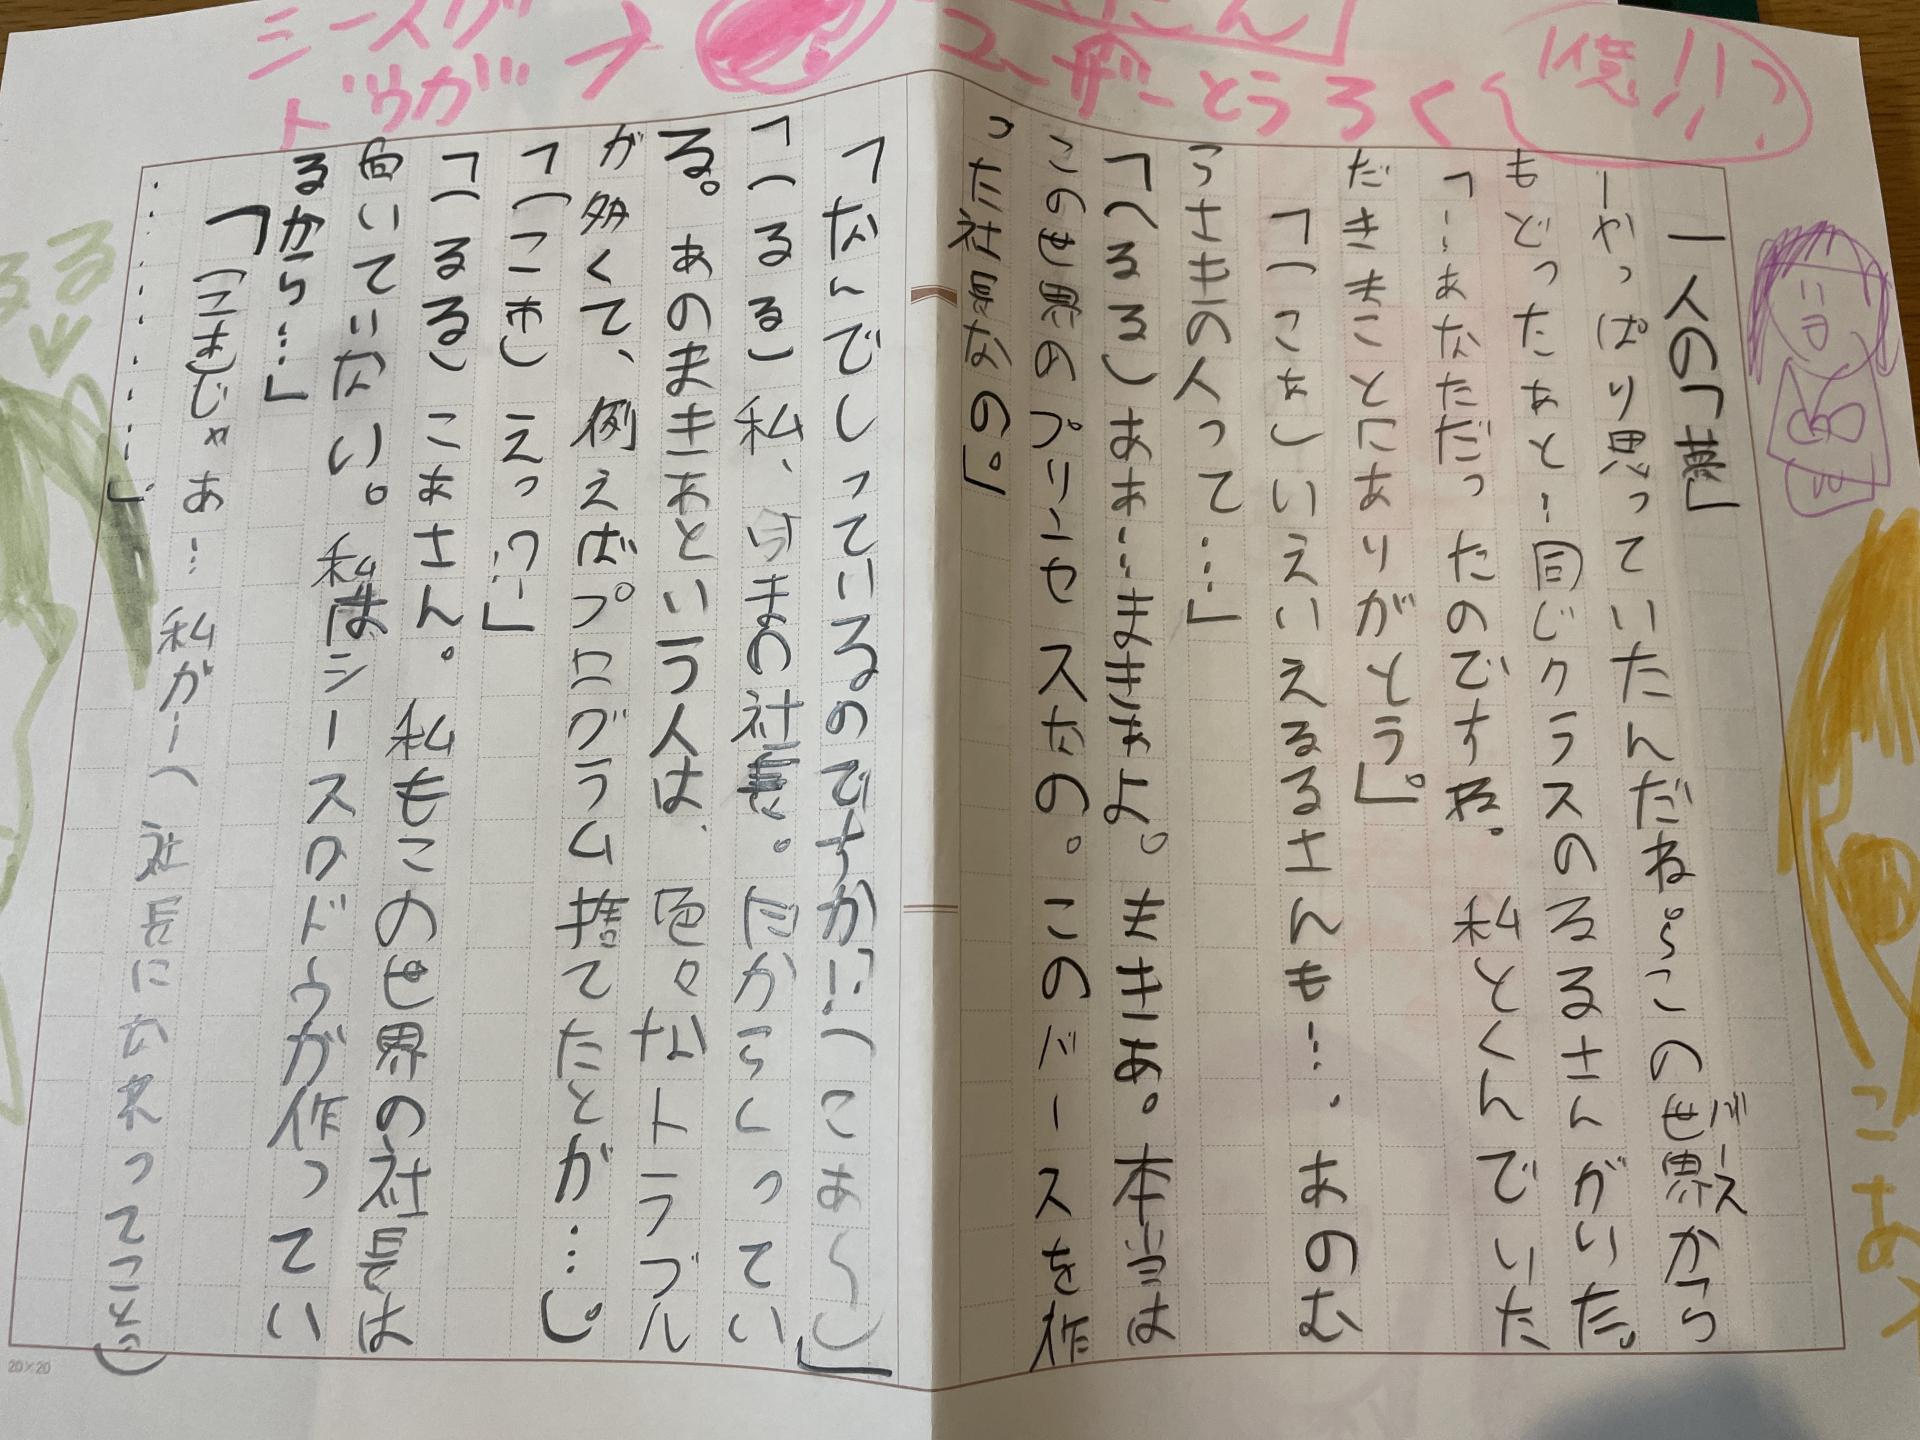 ユーザーとうろく
1億!!?
シースグ
ドウガ→
一人の「夢」
ーやっぱり思っていたんだね。らこのせ界から
バース
もどったあと…同じクラスのるるさんがいた。
「…あなただったのですね。私とくんでいた
だききことにありがとう」。
「(こあ)いえいえるるさんも…。あのむ
らさきの人って…」
「(るる)ああ…まきあよ。まきあ。本当は
このせ界のプリンセスなの。このバースを作
った社長なの」。
「なんでしっているのですか!?(こあ〜)」
「(るる)私、今まの社長。だからしってい
る。あのまきあという人は、色々なトラブル
が多くて、例えばプログラム捨てたとが…」。
「(こあ)えっ!?…」
「(るる)こあさん。私もこのせ界の社長は
向いていない。私はシースグドウガ作ってい
るから…」
「(こあ)じゃあ…私がー(社長になれってこと〜)
………………」
るる
↓
こあ
20×20